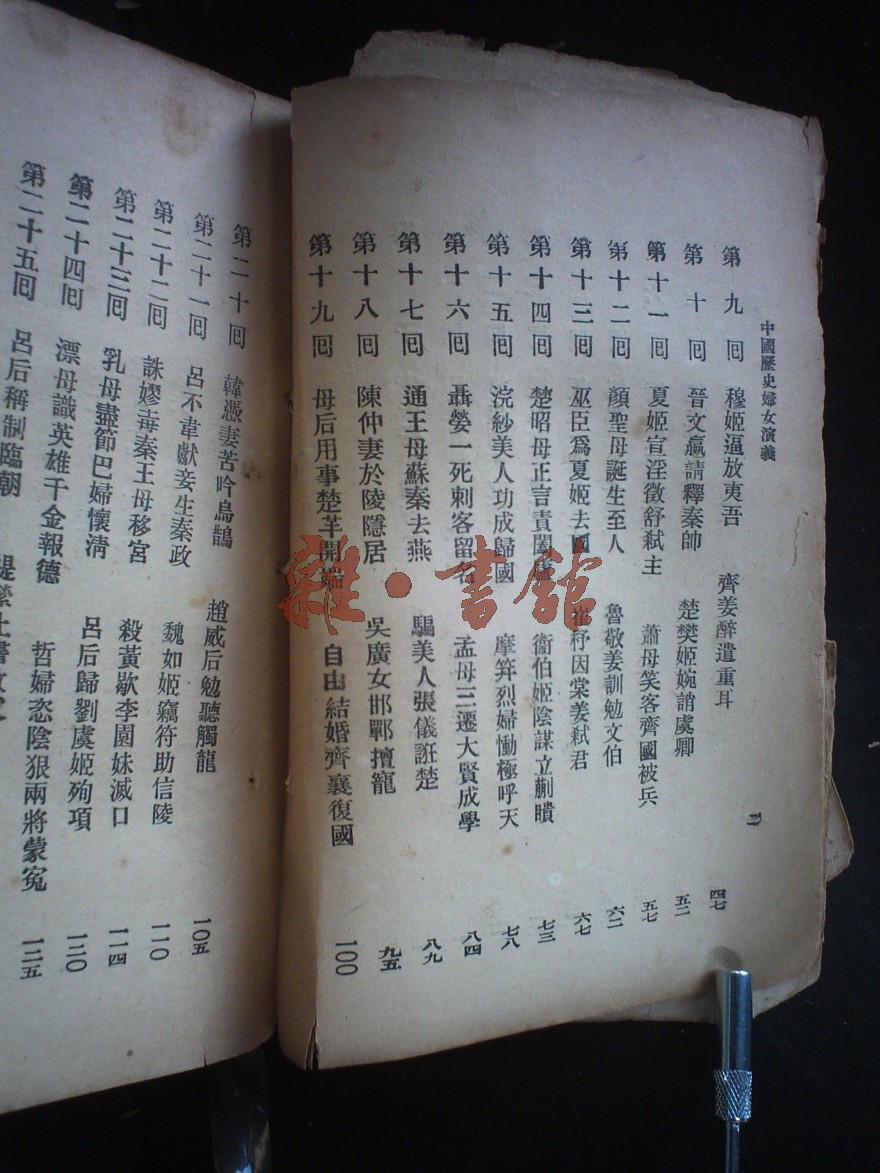 中國歷史婦女演義
二
第九回 穆姬逼放夷吾 齊姜醉遣重耳 四七
第十回 晉文嬴請釋秦帥 楚樊姬婉誚虞卿 五二
第十一回 夏姬宣淫徵舒弒主 蕭母笑客齊國被兵 五七
第十二回 顏聖母誕生至人 魯敬姜訓勉文伯 六二
第十三回 巫臣爲夏姬去國 崔杼因棠姜弒君 六七
第十四回 楚昭母正言責闔廬 衞伯姬陰謀立蒯聵 七三
第十五回 浣紗美人功成歸國 摩笄烈婦慟極呼天 七八
第十六回 聶嫈一死刺客留名 孟母三遷大賢成學 八四
第十七回 通王母蘇秦去燕 騙美人張儀誑楚 八九
第十八回 陳仲妻於陵隱居 吳廣女邯鄲擅寵 九五
第十九回 母后用事楚羋開端 自由結婚齊襄復國 一〇〇
第二十回 韓憑妻苦吟烏鵲 趙威后勉聽觸龍 一〇五
第二十一回 呂不韋獻妾生秦政 魏如姬竊符助信陵 一一〇
第二十二回 誅嫪毐秦王母移宮 殺黃歇李園妹滅口 一一四
第二十三回 乳母盡節巴婦懷清 呂后歸劉虞姬殉項 一二〇
第二十四回 漂母識英雄千金報德 哲婦恣陰狠兩將蒙冤 一二五
第二十五回 呂后稱制臨朝 緹縈上書
雜·書館